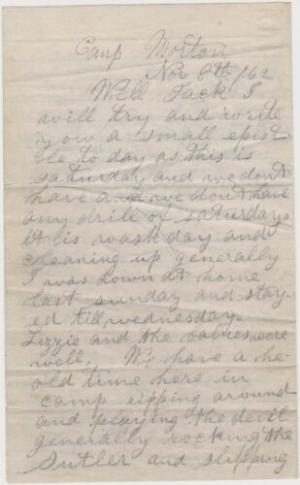 Camp Morton
Nov 8th /62
Well Jack I
will try and write
you a small epist
le to day as this is
saturday and we dont
have and we dont have
any drill of saturdays
it is wash day and
cleaning up generally
I was down at home
last sunday and stay
ed till wednesday
Lizzie and the babies were
well. We have a he
old time here in
camp ripping around
and playing the devil
generally rocking the
Sutler and slipping